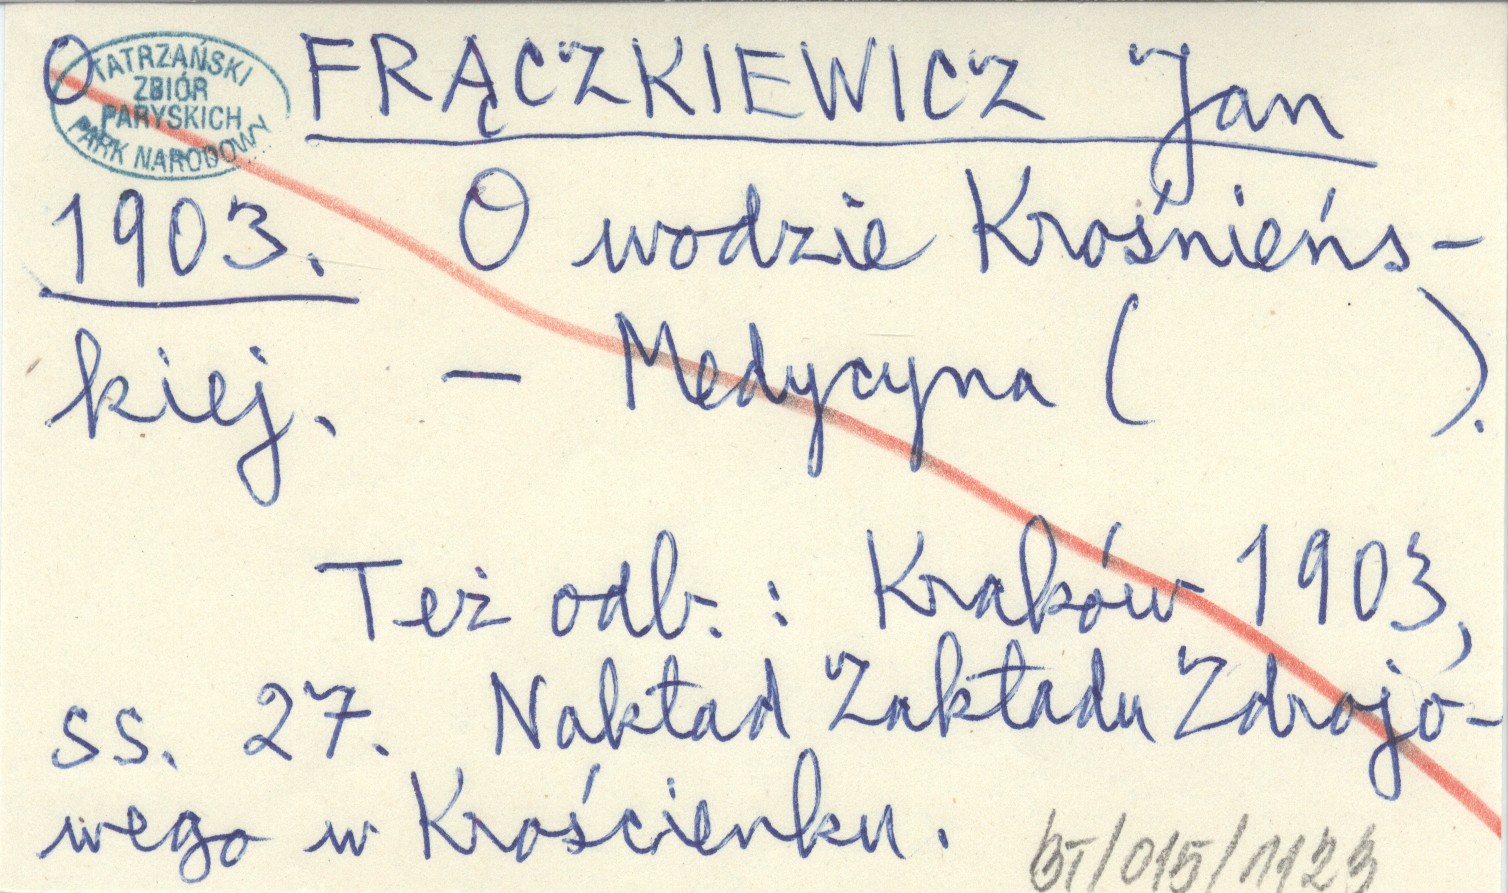 O FRĄCZKIEWICZ Jan
TATRZAŃSKI
ZBIÓR
PARYSKICH
PARK NARODOWY
1903. O wodzie Krośnieńs-
kiej. - Medycyna ( ).
Też odb. : Kraków 1903,
ss. 27. Nakład Zakładu Zdrojo-
wego w Krościenku.
BT/015/1123